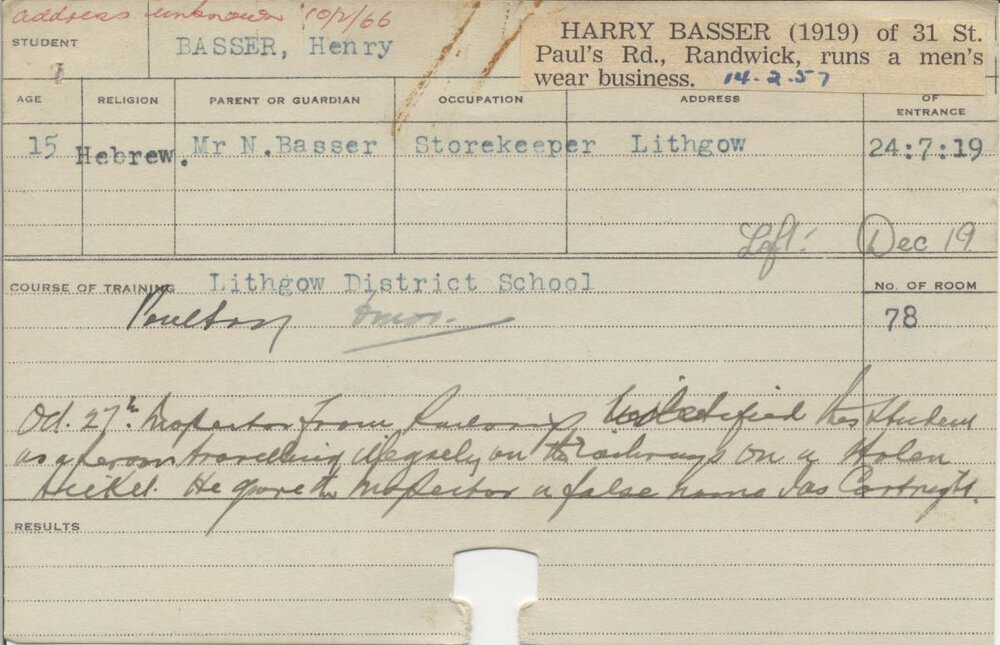 address unknown 10/2/66
STUDENT BASSER, Henry
HARRY BASSER (1919) of 31 St.
Paul's Rd., Randwick, runs a men's
wear business. 14-2-57
AGE RELIGION PARENT OR GUARDIAN OCCUPATION ADDRESS OF
ENTRANCE
15 Hebrew. Mr N.Basser Storekeeper Lithgow 24:7:19
Left: Dec 19
COURSE OF TRAINING Lithgow District School NO. OF ROOM
78
Oct. 27th Inspector from Railways identified this student
as a person travelling illegally on the railways on a stolen
ticket. He gave the Inspector a false name Jas Cartright.
RESULTS